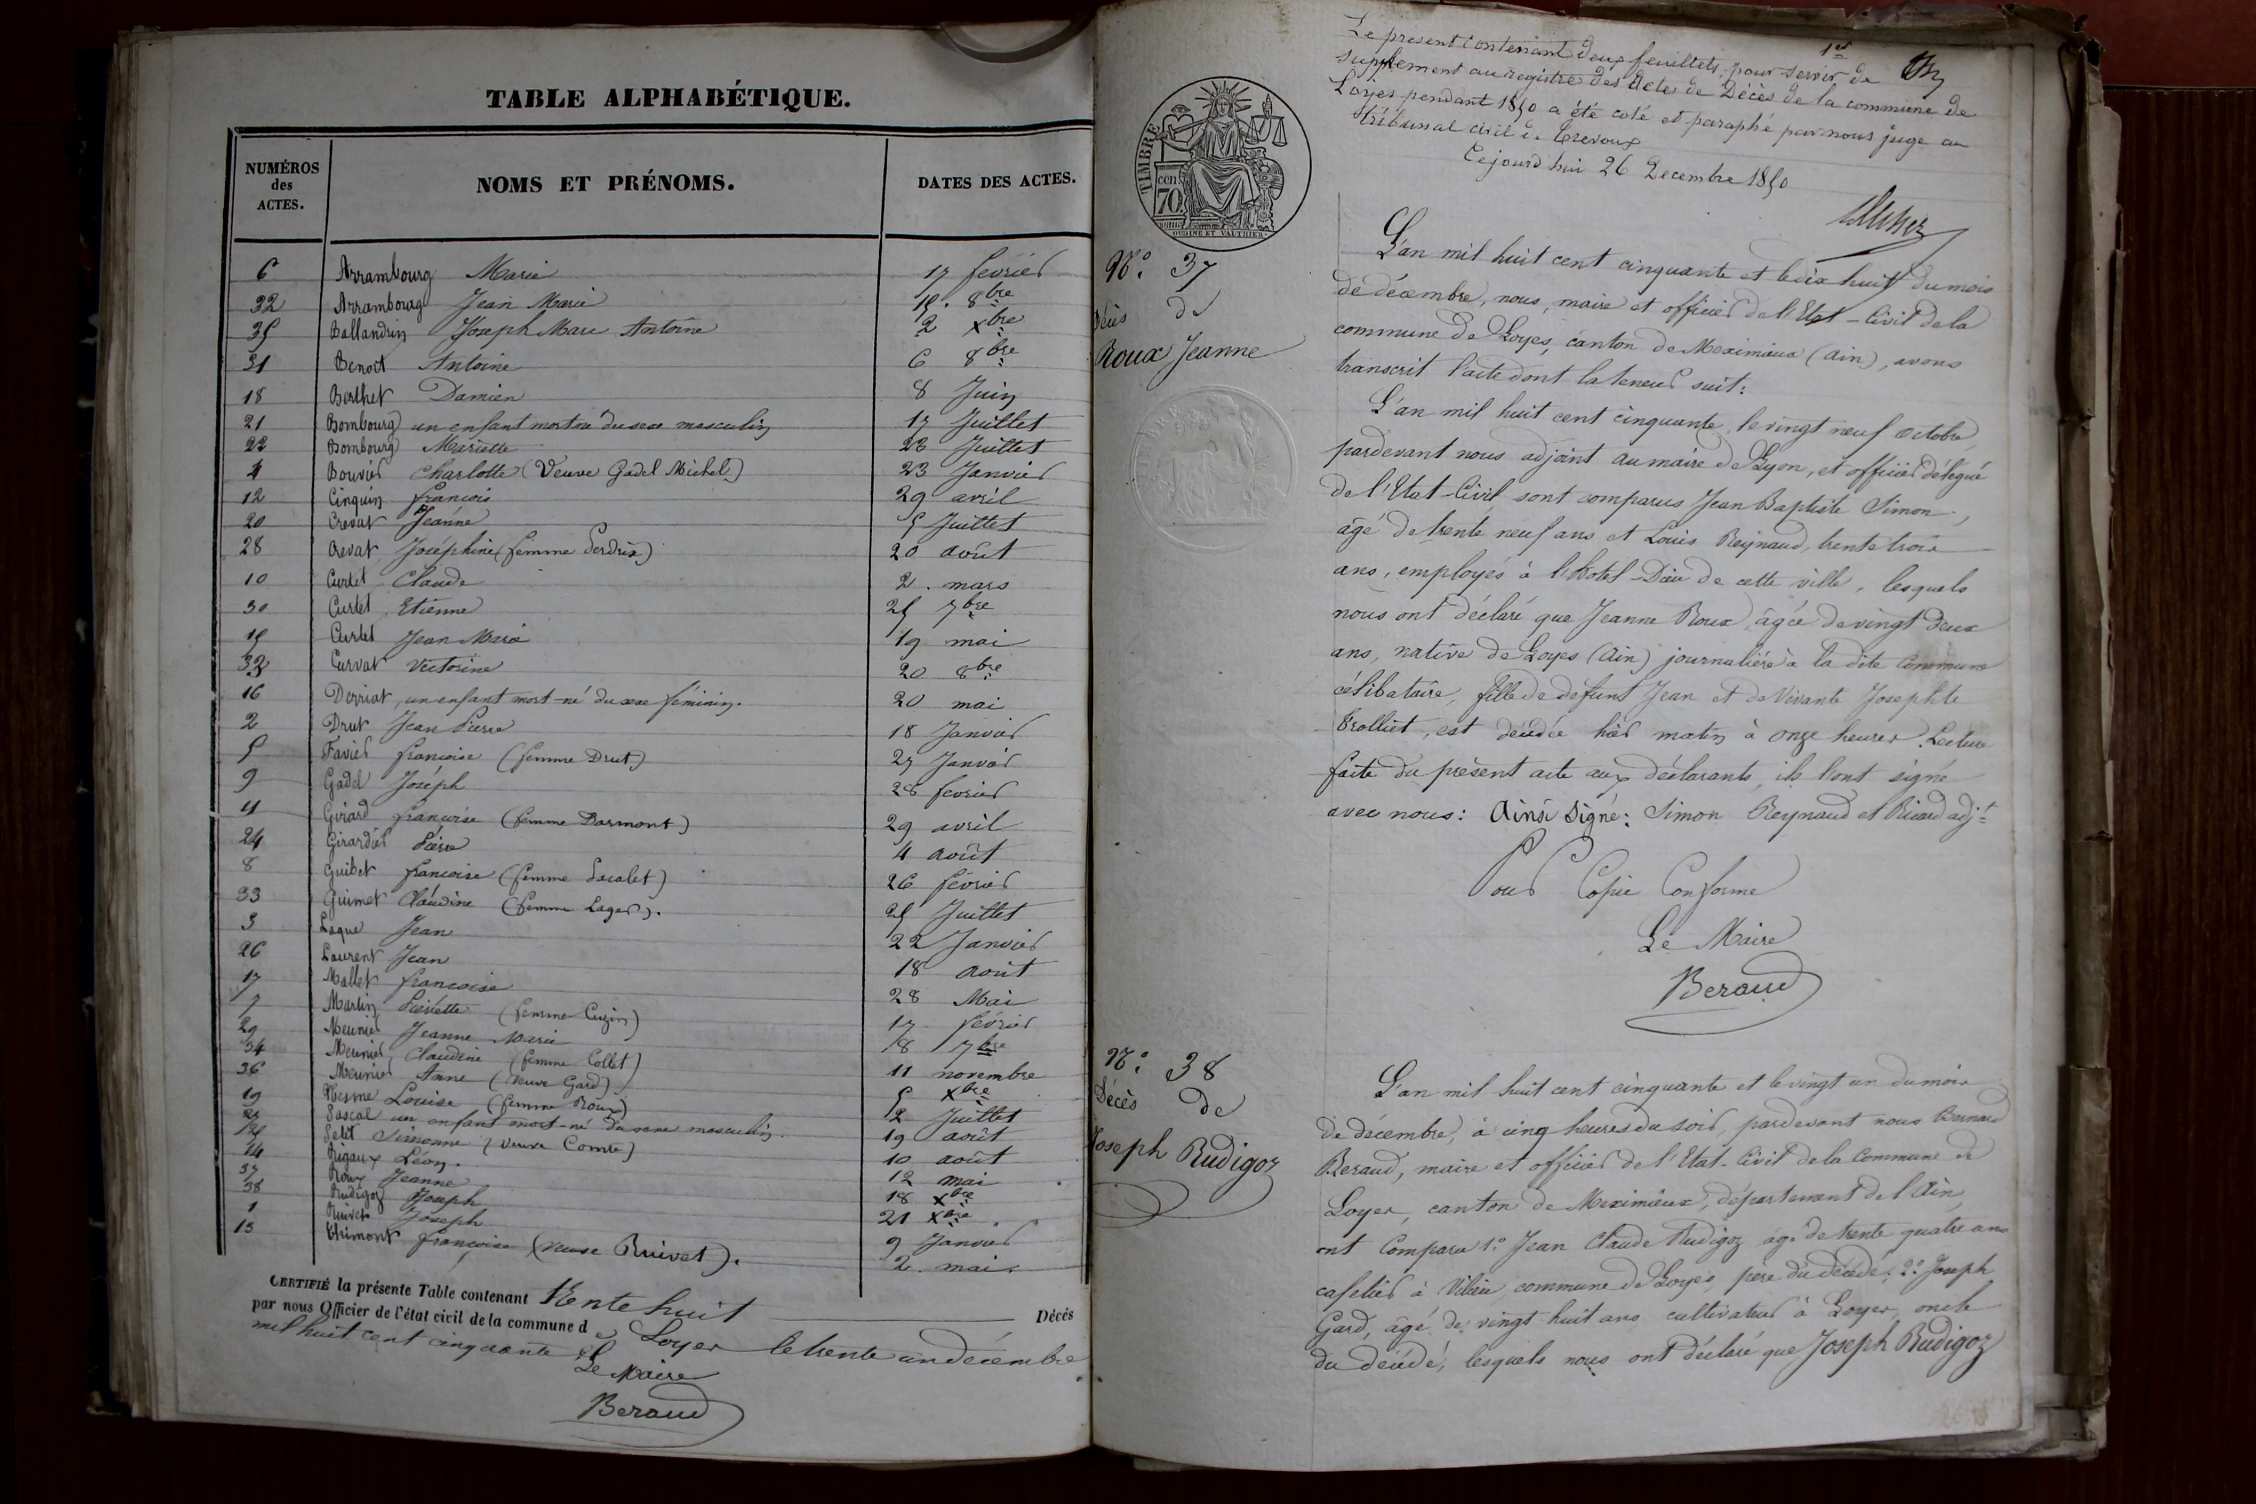 TABLE ALPHABÉTIQUE.
NUMÉROS des ACTES. NOMS ET PRÉNOMS. DATES DES ACTES.
6 Arrambourg Marie 17 février
32 Arrambourg Jean Marie 18. 8bre
35 Ballandrin Joseph Marie Antoine 2 xbre
31 Benoit Antoine 6 8bre
18 Berthet Damien 8 Juin
21 Bombourg un enfant mort né du sexe masculin 17 Juillet
22 Bombourg Mariette 22 Juillet
4 Bouvier Charlotte (Veuve Gadel Michel) 23 Janvier
12 Cinquin françois 29 avril
20 Crevat Jeanne 5 Juillet
28 Crevat Joséphine (femme Perdrix) 20 août
10 Curtet Claude 2. mars
30 Curtet Etienne 25 7bre
Curtet Jean Marie 19 mai
Curvat Victorine 20 8bre
16 Derriat, un enfant mort-né du sexe féminin. 20 mai
2 Drut Jean Pierre 18 Janvier
5 Favier françoise (femme Drut) 27 Janvier
9 Gadel Joséph 28 fevrier
11 Girard françoise (femme Darmont) 29 avril
24 Girardier Pierre 4 août
8 Guibet françoise (femme Pacalet) 26 février
33 Guimet Claudine (femme Lager). 25 Juillet
3 Laque Jean 22 Janvier
26 Laurent Jean 18 août
17 Mallet françoise 28 Mai
7 Martin Pierrette (femme Cuzin) 17 février
29 Meunier Jeanne Marie 18 7bre
34 Meunier Claudine (femme Collet) 11 novembre
36 Meunier Anne (veuve Gard) 5 xbre
19 Mesme Louise (femme Roux) 2 Juillet
Pascal un enfant mort-né du sexe masculin. 19 août
Petit Simonne (veuve Comte) 10 août
14 Rigaux Léon. 12 mai
37 Roux Jeanne 18 xbre
38 Rudigoz Joseph 21 xbre
1 Ruivet Joseph 9 Janvier
13 Thimont françoise (veuve Ruivet). 2. mai.
CERTIFIÉ la présente Table contenant trente huit Décès
par nous Officier de l'état civil de la commune de Loyes le trente un décembre
mil huit cent cinquante
Le Maire
Beraud
1er
Le present contenant deux feuillets, pour servir de
supplement au registre des Actes de Décès de la commune de
Loyes pendant 1850 a été coté et paraphé par nous juge au
tribunal civil de Trevoux
Cejourd'hui 26 Decembre 1850
TIMBRE
70 cen.
N.° 37
Décès de
Roux Jeanne
L'an mil huit cent cinquante et le dix huit du mois
de décembre, nous, maire et officier de l'Etat-Civil de la
commune de Loyes, canton de Meximieux (Ain), avons
transcrit l'acte dont la teneur suit:
L'an mil huit cent cinquante, le vingt neuf octobre,
pardevant nous adjoint au maire de Lyon, et officier délégué
de l'Etat-Civil sont comparus Jean Baptiste Simon,
âgé de trente neuf ans et Louis Reynaud, trente trois
ans, employés à l'hotel-Dieu de cette ville, lesquels
nous ont déclaré que Jeanne Roux, âgée de vingt deux
ans, native de Loyes (Ain) journalière à la dite Commune
célibataire, fille de défunt Jean et de vivante Josephte
Trolliet, est décédée hier matin à onze heures. Lecture
faite du présent acte aux déclarants, ils l'ont signé
avec nous: Ainsi signé: Simon Reynaud et Ricard adjt
Pour Copie Conforme
Le Maire
Beraud
N.° 38
Décès de
Joseph Rudigoz
L'an mil huit cent cinquante et le vingt un du mois
de décembre, à cinq heures du soir, pardevant nous Bernard
Beraud, maire et officier de l'Etat-Civil de la Commune de
Loyes, canton de Meximieux, département de l'Ain,
ont Comparu 1.° Jean Claude Rudigoz âgé de trente quatre ans
cafetier à Vilieu, commune de Loyes, père du décédé; 2.° Joseph
Gard, âgé de vingt huit ans cultivateur à Loyes, oncle
du décédé, lesquels nous ont déclaré que Joseph Rudigoz